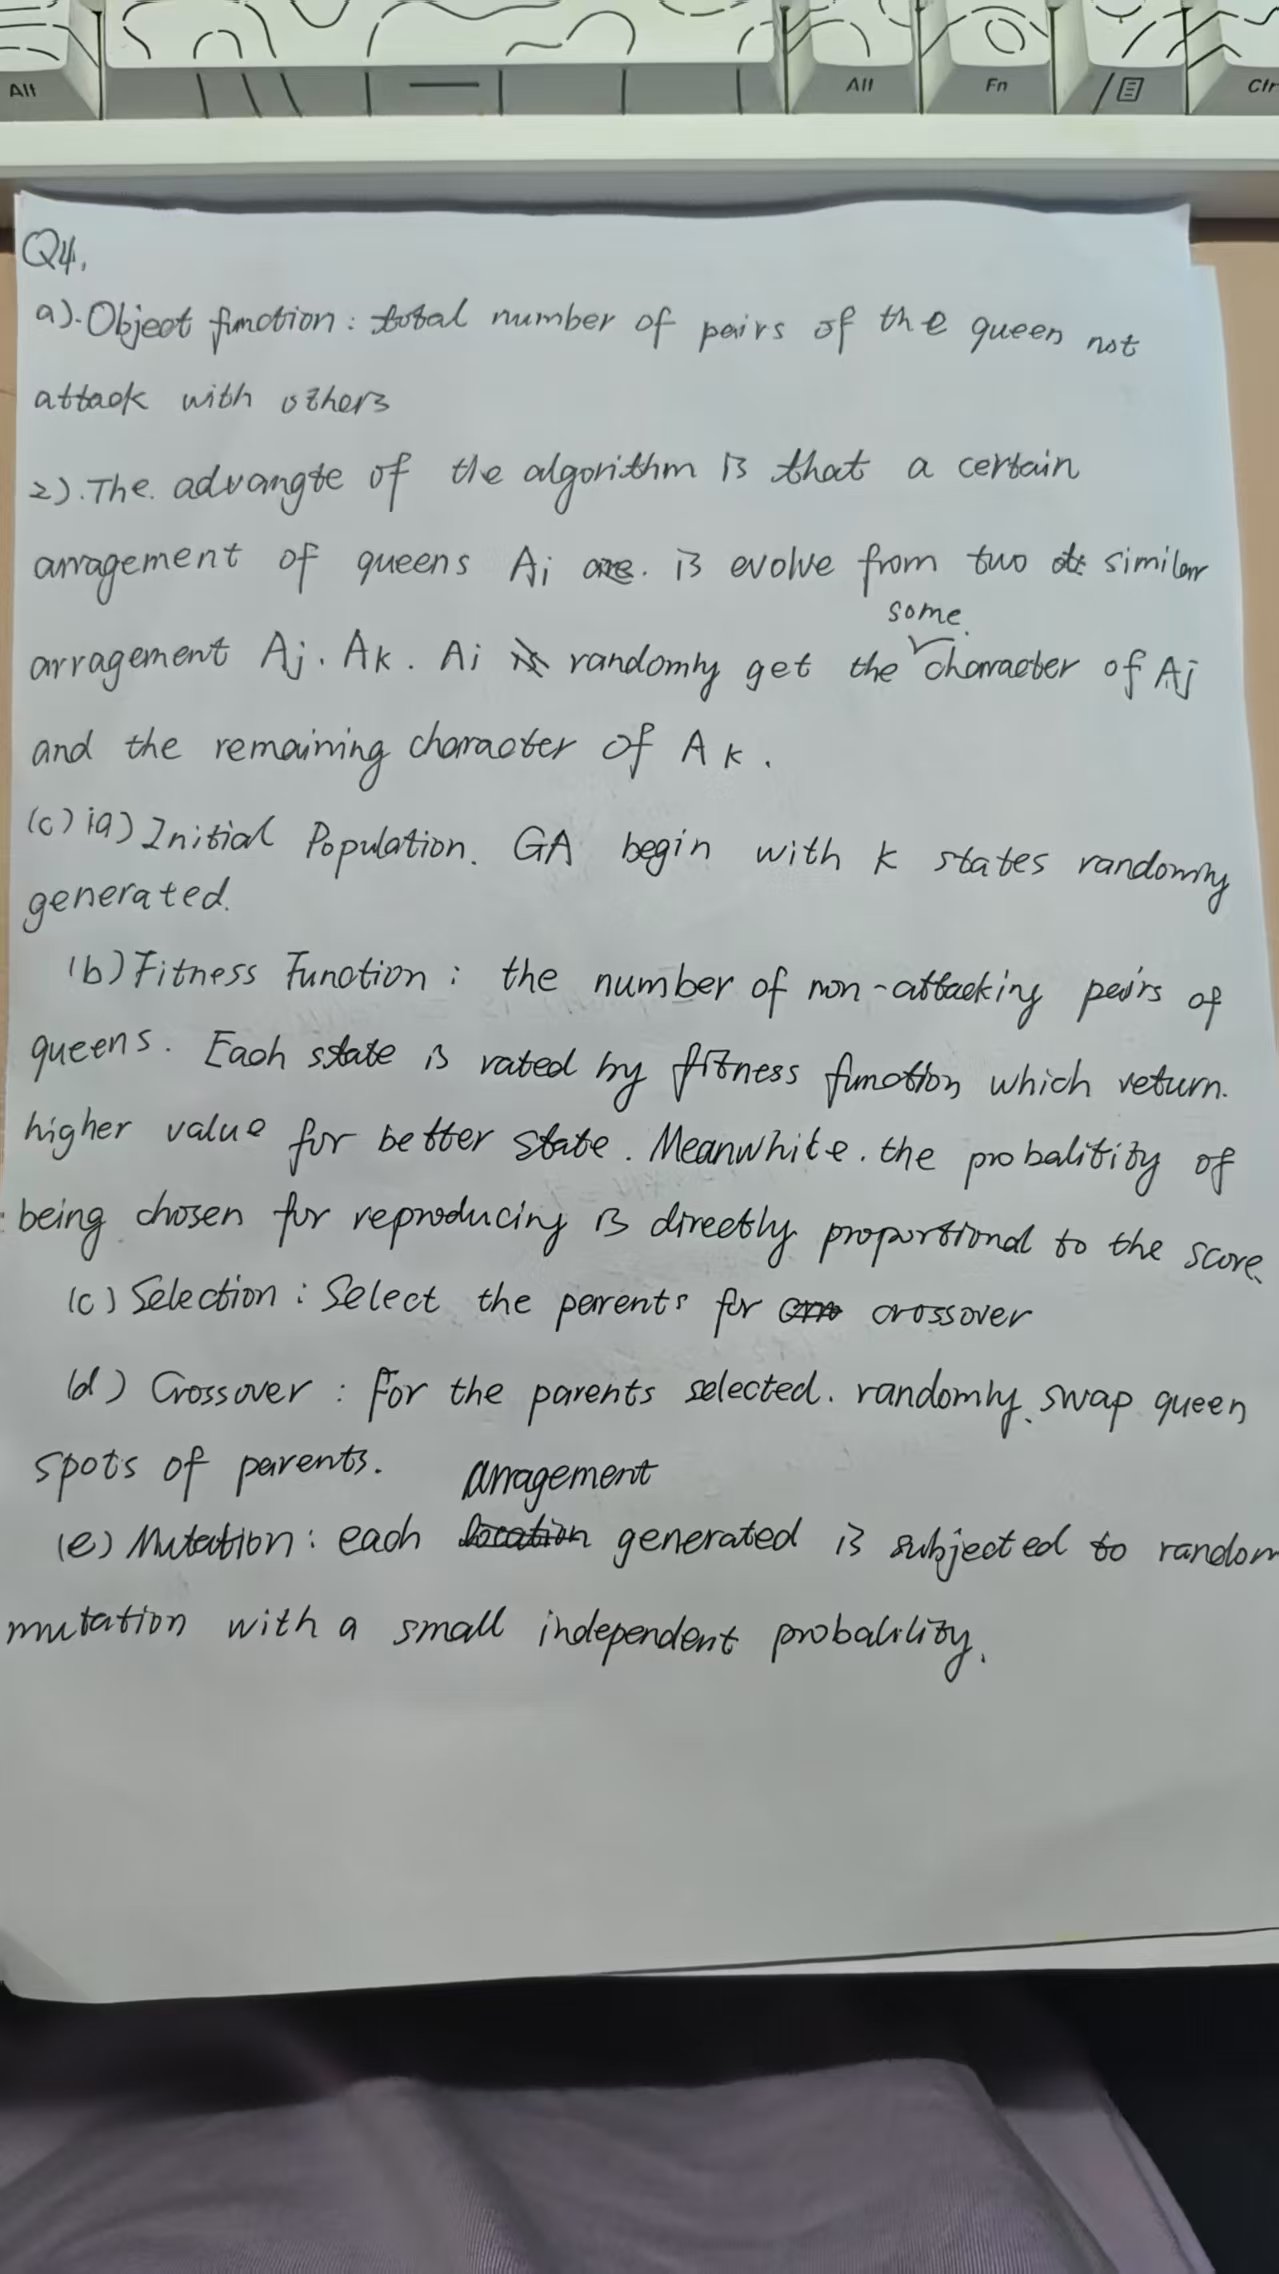 Alt
Alt
Fn
Ctr
Q4.
a). Object function: total number of pairs of the queen not
attack with others
2). The. advangte of the algorithm is that a certain
arragement of queens Ai is evolve from two similar
some.
arragement Aj. Ak. Ai randomly get the character of Aj
and the remaining character of Ak.
(c) (a) Initial Population. GA begin with k states randomly
generated.
(b) Fitness Function: the number of non-attacking pairs of
queens. Each state is rated by fitness function which return.
higher value for better state. Meanwhite. the probalitity of
being chosen for reproducing is directly proportional to the score.
(c) Selection: Select the parents for crossover
(d) Crossover: For the parents selected. randomly swap queen
spots of parents.
arragement
(e) Mutation: each location generated is subjected to random
mutation with a small independent probalility.